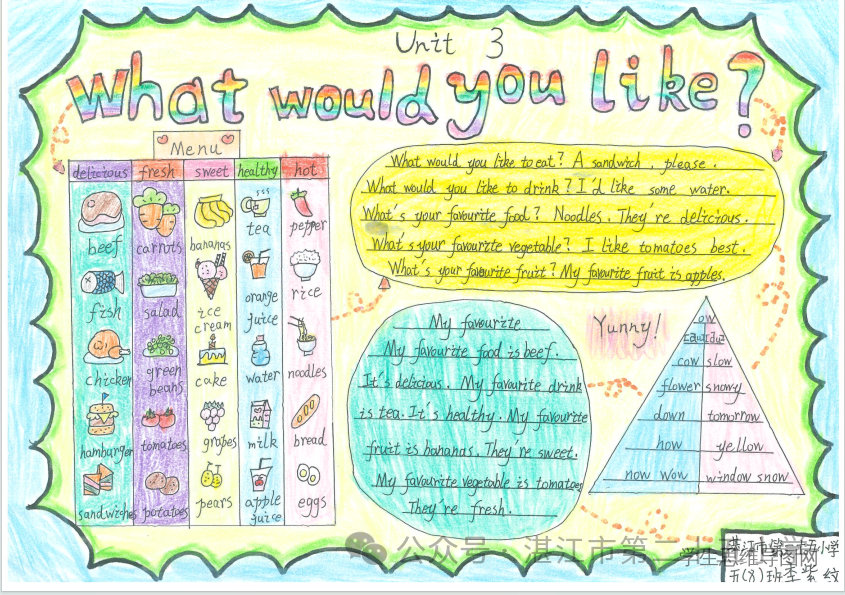 Unit 3
What would you like?
Menu
delicious fresh sweet healthy hot
beef carrots bananas tea pepper
fish salad ice cream orange juice rice
chicken green beans cake water noodles
hamburger tomatoes grapes milk bread
sandwiches potatoes pears apple juice eggs
What would you like to eat? A sandwich, please.
What would you like to drink? I'd like some water.
What's your favourite food? Noodles. They're delicious.
What's your favourite vegetable? I like tomatoes best.
What's your favourite fruit? My favourite fruit is apples.
My favourite
My favourite food is beef.
It's delicious. My favourite drink
is tea. It's healthy. My favourite
fruit is bananas. They're sweet.
My favourite vegetable is tomatoes
They're fresh.
Yunny!
ow
[au] [əu]
cow slow
flower snowy
down tomorrow
how yellow
now wow window snow
公众号·湛江市第二十五小学
学生思维导图网
湛江市第二十五小学
五(8)班李紫纹